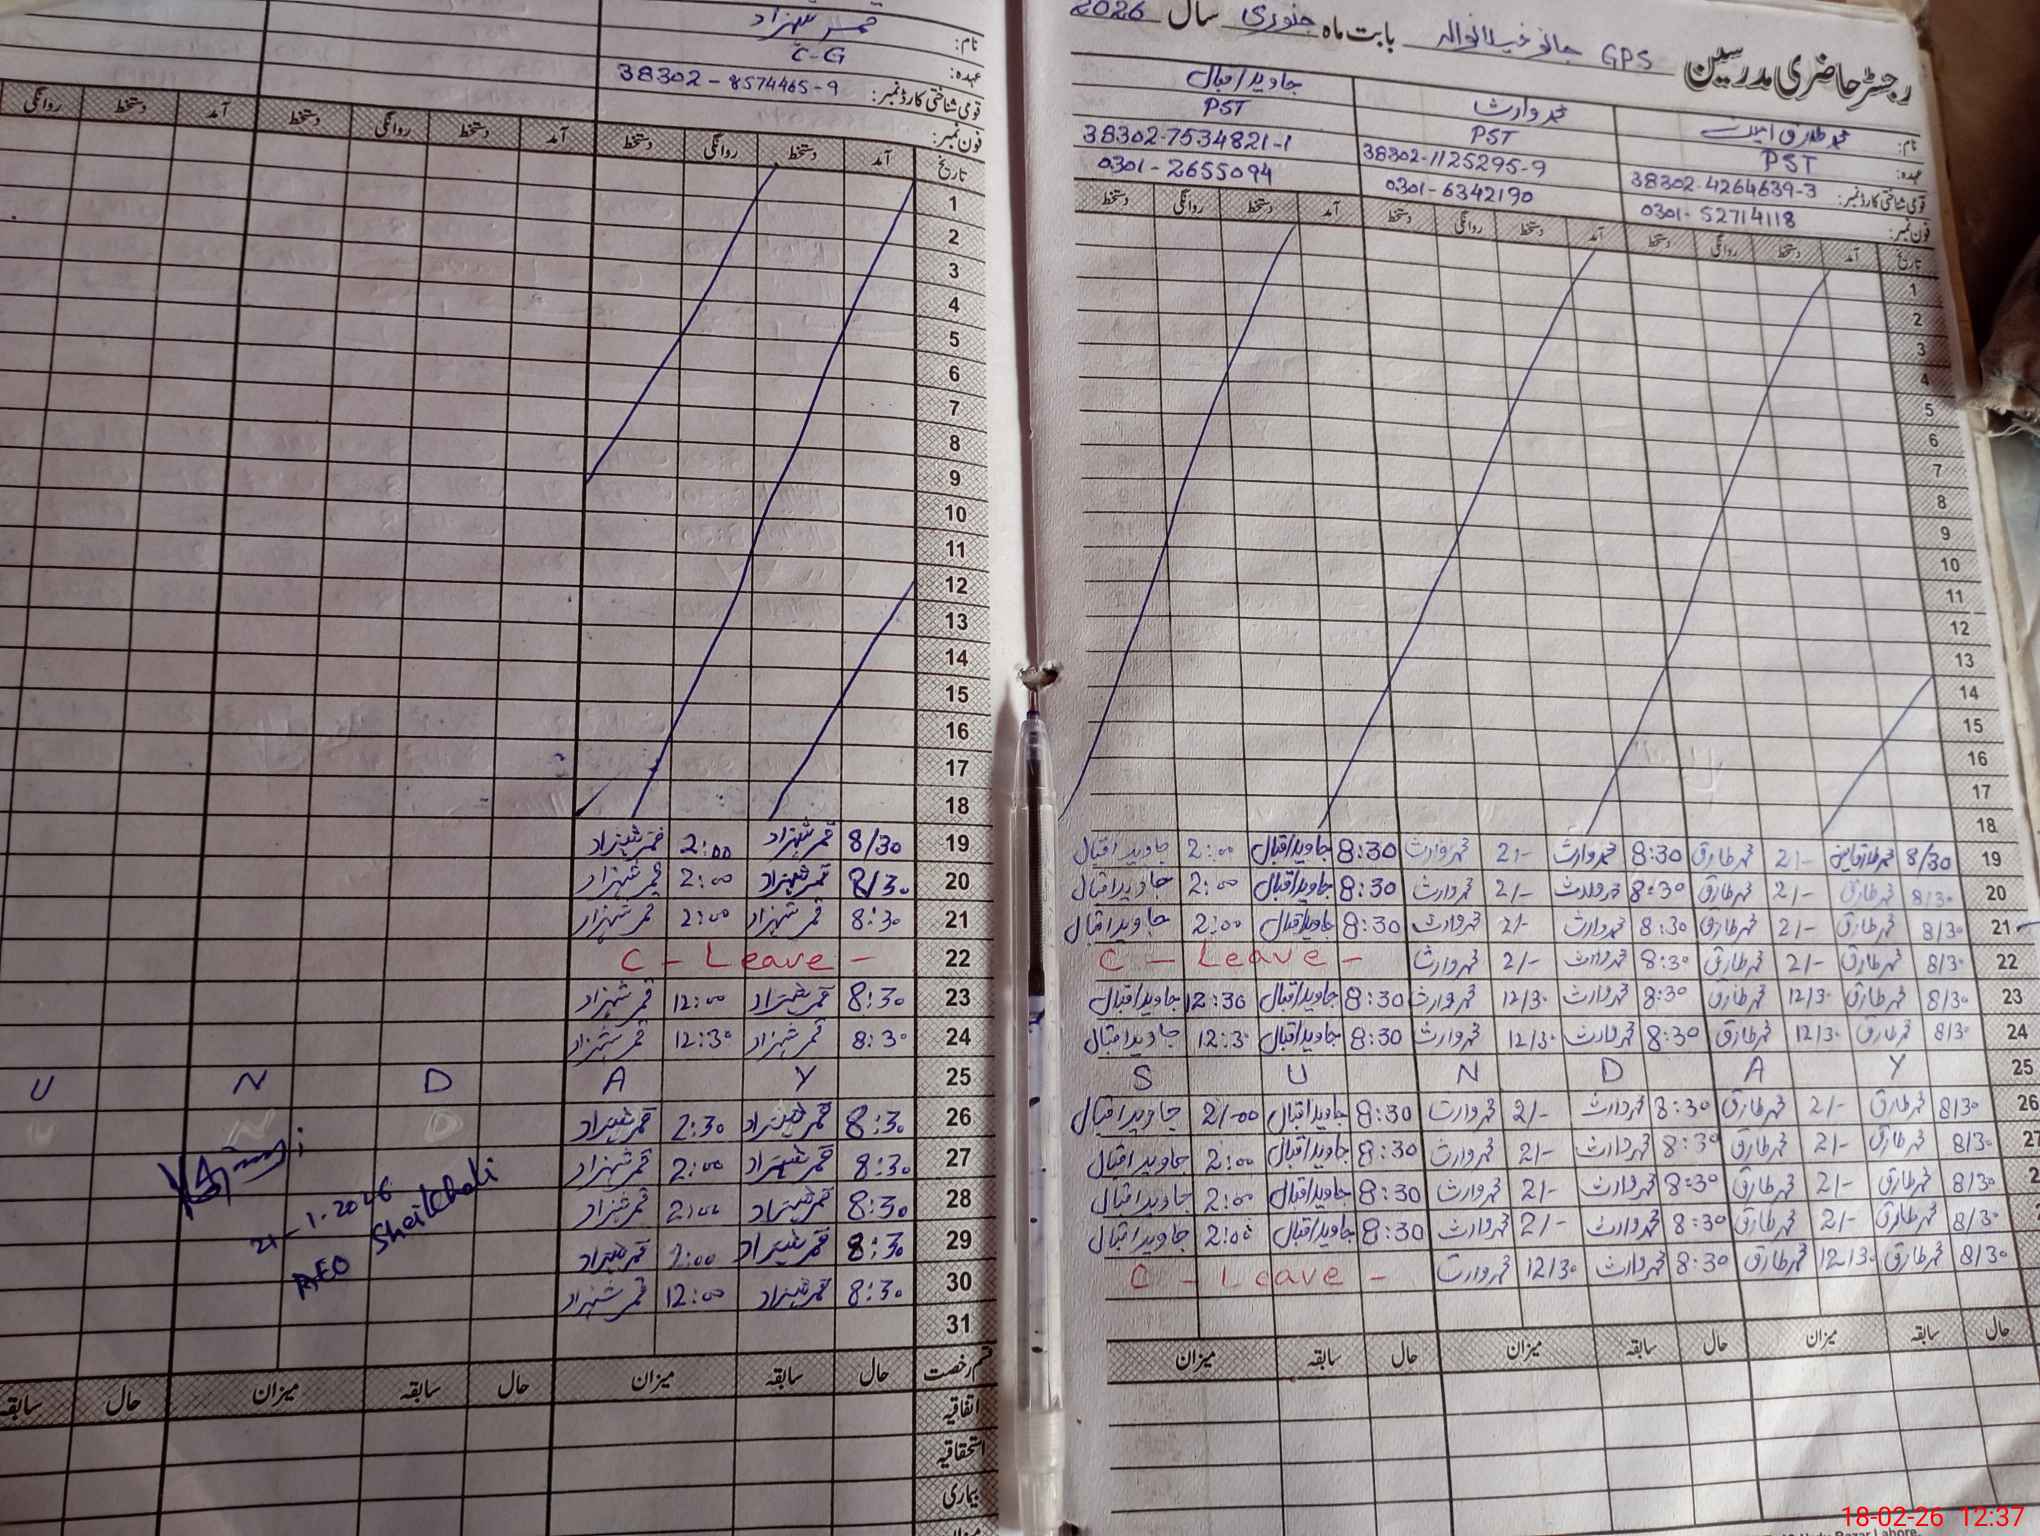 رجسٹر حاضری مدرسین GPS جانو خیلانوالہ بابت ماہ جنوری سال 2026
نام: محمد طارق امین محمد وارث جاوید اقبال
عہدہ: PST PST PST
قومی شناختی کارڈ نمبر: 38302-4264639-3 38302-1125295-9 38302-7534821-1
فون نمبر: 0301-52714118 0301-6342190 0301-2655094
تاریخ آمد دستخط روانگی دستخط آمد دستخط روانگی دستخط آمد دستخط روانگی دستخط
1
2
3
4
5
6
7
8
9
10
11
12
13
14
15
16
17
18
19 8/30 محمد طارق امین 2/- محمد طارق 8:30 محمد وارث 2/- محمد وارث 8:30 جاوید اقبال 2:00 جاوید اقبال
20 8/30 محمد طارق 2/- محمد طارق 8:30 محمد وارث 2/- محمد وارث 8:30 جاوید اقبال 2:00 جاوید اقبال
21 8/30 محمد طارق 2/- محمد طارق 8:30 محمد وارث 2/- محمد وارث 8:30 جاوید اقبال 2:00 جاوید اقبال
22 8/30 محمد طارق 2/- محمد طارق 8:30 محمد وارث 2/- محمد وارث C - Leave -
23 8/30 محمد طارق 12/30 محمد طارق 8:30 محمد وارث 12/30 محمد وارث 8:30 جاوید اقبال 12:30 جاوید اقبال
24 8/30 محمد طارق 12/30 محمد طارق 8:30 محمد وارث 12/30 محمد وارث 8:30 جاوید اقبال 12:30 جاوید اقبال
25 S U N D A Y
26 8/30 محمد طارق 2/- محمد طارق 8:30 محمد وارث 2/- محمد وارث 8:30 جاوید اقبال 2/-00 جاوید اقبال
27 8/30 محمد طارق 2/- محمد طارق 8:30 محمد وارث 2/- محمد وارث 8:30 جاوید اقبال 2:00 جاوید اقبال
2 8/30 محمد طارق 2/- محمد طارق 8:30 محمد وارث 2/- محمد وارث 8:30 جاوید اقبال 2:00 جاوید اقبال
8/30 محمد طارق 2/- محمد طارق 8:30 محمد وارث 2/- محمد وارث 8:30 جاوید اقبال 2:00 جاوید اقبال
8/30 محمد طارق 12/30 محمد طارق 8:30 محمد وارث 12/30 محمد وارث C - Leave -
حال سابقہ میزان حال سابقہ میزان حال سابقہ میزان
نام: قمر شہزاد
عہدہ: C-G
قومی شناختی کارڈ نمبر: 38302-8574465-9
فون نمبر:
تاریخ آمد دستخط روانگی دستخط آمد دستخط روانگی دستخط آمد دستخط روانگی
1
2
3
4
5
6
7
8
9
10
11
12
13
14
15
16
17
18
19 8/30 قمر شہزاد 2:00 قمر شہزاد
20 8/30 قمر شہزاد 2:00 قمر شہزاد
21 8:30 قمر شہزاد 2:00 قمر شہزاد
22 C - Leave -
23 8:30 قمر شہزاد 12:00 قمر شہزاد
24 8:30 قمر شہزاد 12:30 قمر شہزاد
25 U N D A Y
26 8:30 قمر شہزاد 2:30 قمر شہزاد
27 8:30 قمر شہزاد 2:00 قمر شہزاد
28 8:30 قمر شہزاد 2:00 قمر شہزاد
29 8:30 قمر شہزاد 2:00 قمر شہزاد
30 8:30 قمر شہزاد 12:00 قمر شہزاد
31
21-1-2026
AEO Sheikhali
قسم رخصت حال سابقہ میزان حال سابقہ میزان حال سابقہ
اتفاقیہ
استحقاقیہ
بیماری
میزان
Urdu Bazar Lahore.
18-02-26 12:37